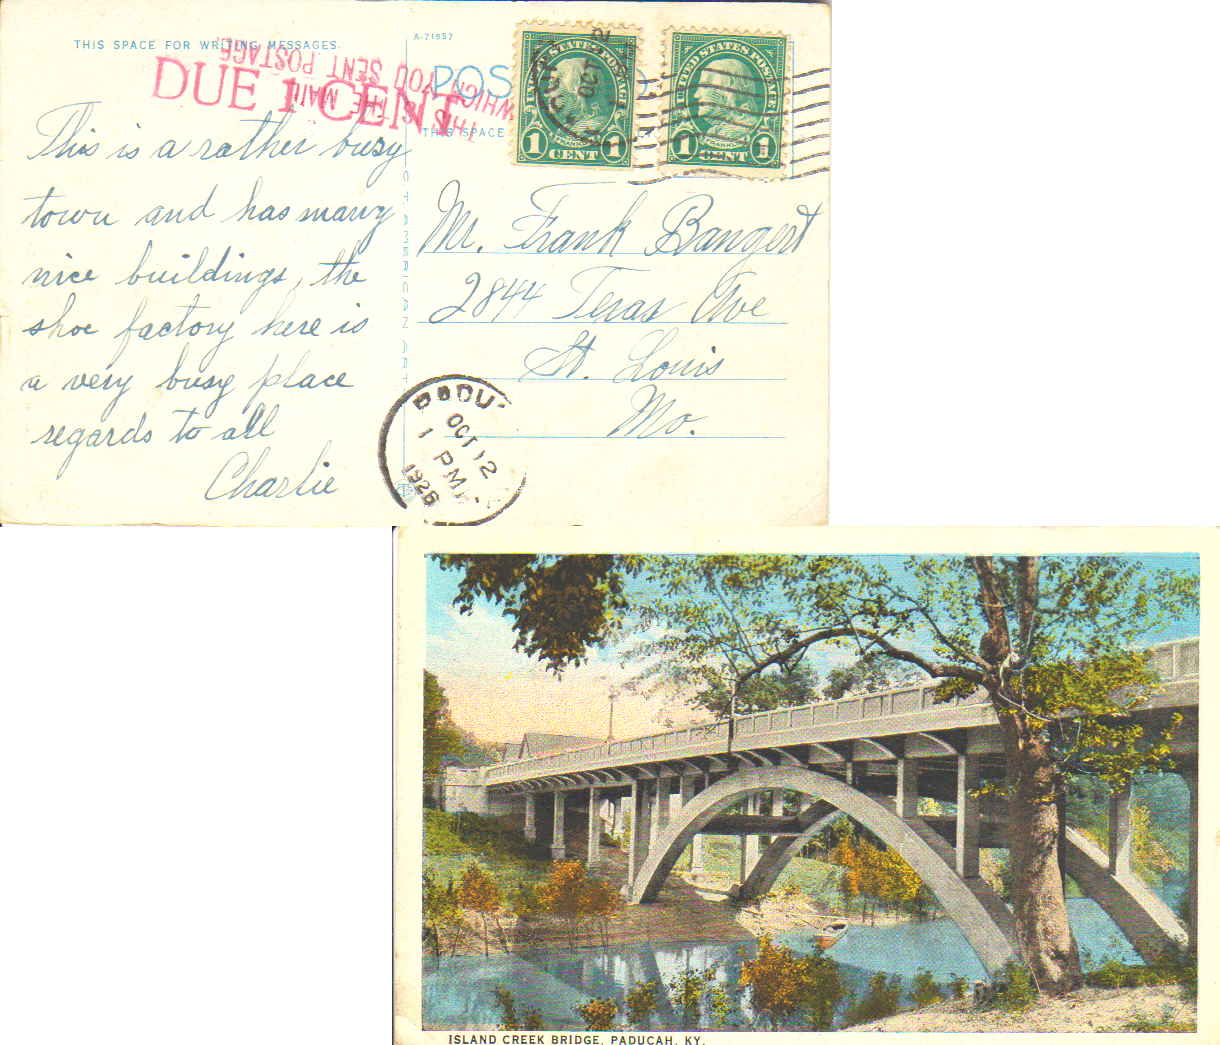 THIS SPACE FOR WRITING MESSAGES
A-71957
POS
DUE 1 CENT
THIS IS THE MAIL
WHICH YOU SENT POSTAGE.
THIS SPACE
1 CENT 1
UNITED STATES POSTAGE
1 CENT 1
This is a rather busy
town and has many
nice buildings, the
shoe factory here is
a very busy place
regards to all
Charlie
Mr. Frank Bangert
2844 Texas Ave
St. Louis
Mo.
OCT 12
1 PM
1926
ISLAND CREEK BRIDGE, PADUCAH, KY.